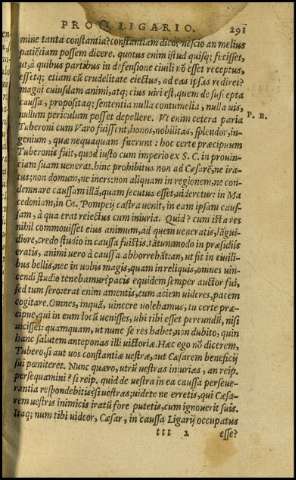 PRO Q. LIGARIO. 291
mine tanta constantia? constantiam dico: nescio an melius
patiẽtiam possem dicere. quotus enim istud quisq; fecisset,
ut, à quibus partibus in dissensione ciuili nõ esset receptus,
essetq; etiam cũ crudelitate eiectus, ad eas ipsas rediret?
magni cuiusdam animi, atq; eius uiri est, quem de suscepta
caussa, propositaq; sententia nulla contumelia, nulla uis,
nullum periculum posset depellere. Vt enim cetera paria P. R.
Tuberoni cum Varo fuissent, honos, nobilitas, splendor, in-
genium, quæ nequaquam fuerunt: hoc certe præcipuum
Tuberonis fuit, quod iusto cum imperio ex S. C. in prouin-
ciam suam uenerat. hinc prohibitus non ad Cæsarẽ, ne ira-
tus; non domum, ne iners; non aliquam in regionem, ne con-
demnare caussam illã, quam secutus esset, uideretur: in Ma
cedoniam, in Cn. Pompeij castra uenit, in eam ipsam caus-
sam, à qua erat reiectus cum iniuria. Quid? cum ista res
nihil commouisset eius animum, ad quem ueneratis, lãgui-
diore, credo studio in caussa fuistis. tãtummodo in præsidijs
eratis, animi uero à caussa abhorrebãt. an, ut fit in ciuili-
bus bellis, nec in uobis magis, quam in reliquis, omnes uin-
cendi studio tenebamur? pacis equidem semper auctor fui,
sed tum sero. erat enim amentis, cum aciem uideres, pacem
cogitare. Omnes, inquã, uincere uolebamus, tu certe præ-
cipue, qui in eum locũ uenisses, ubi tibi esset pereundũ, nisi
uicisses: quamquam, ut nunc se res habet, nõ dubito, quin
hanc salutem anteponas illi uictoriæ. Hæc ego nõ dicerem,
Tubero, si aut uos constantiæ uestræ, aut Cæsarem beneficij
sui pœniteret. Nunc quæro, utrũ uestras iniurias, an reip.
persequamini? si reip. quid de uestra in ea caussa perseue-
rantia respondebitis? si uestras; uidete ne erretis, qui Cæsa-
rem uestris inimicis iratũ fore putetis, cum ignouerit suis.
Itaq; num tibi uideor, Cæsar, in caussa Ligarij occupatus
III 2 esse?